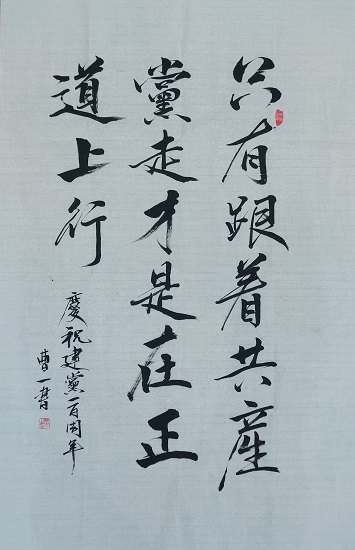 只有跟着共產
黨走才是在正
道上行
慶祝建黨一百周年
曹一書